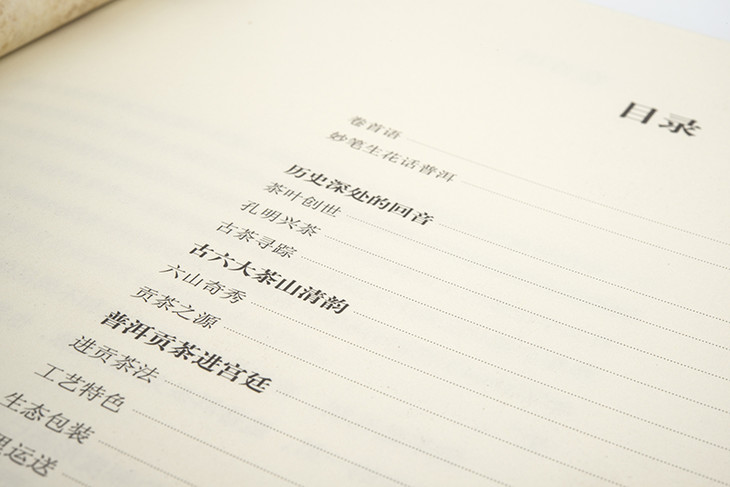 目录
卷首语
妙笔生花话普洱
历史深处的回音
茶叶创世
孔明兴茶
古茶寻踪
古六大茶山清韵
六山奇秀
贡茶之源
普洱贡茶进宫廷
进贡茶法
工艺特色
生态包装
理运送